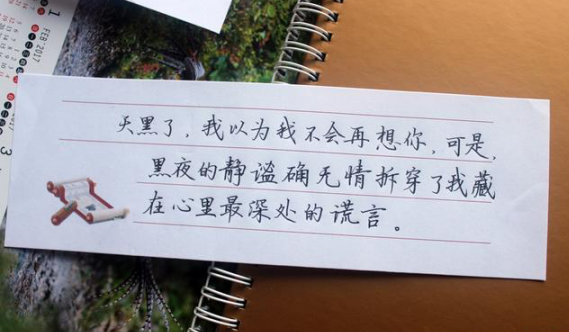 天黑了，我以为我不会再想你，可是，
黑夜的静谧确无情拆穿了我藏
在心里最深处的谎言。
FEB'2017
1
3